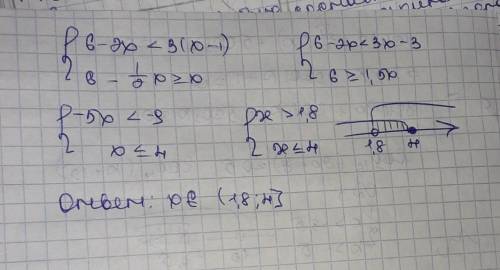 { 6 - 2x < 3(x - 1)
{ 6 - 1/2 x ≥ x
{ 6 - 2x < 3x - 3
{ 6 ≥ 1,5x
{ -5x < -9
{ x ≤ 4
{ x > 1,8
{ x ≤ 4
1,8 4
Ответ: x ∈ (1,8; 4]